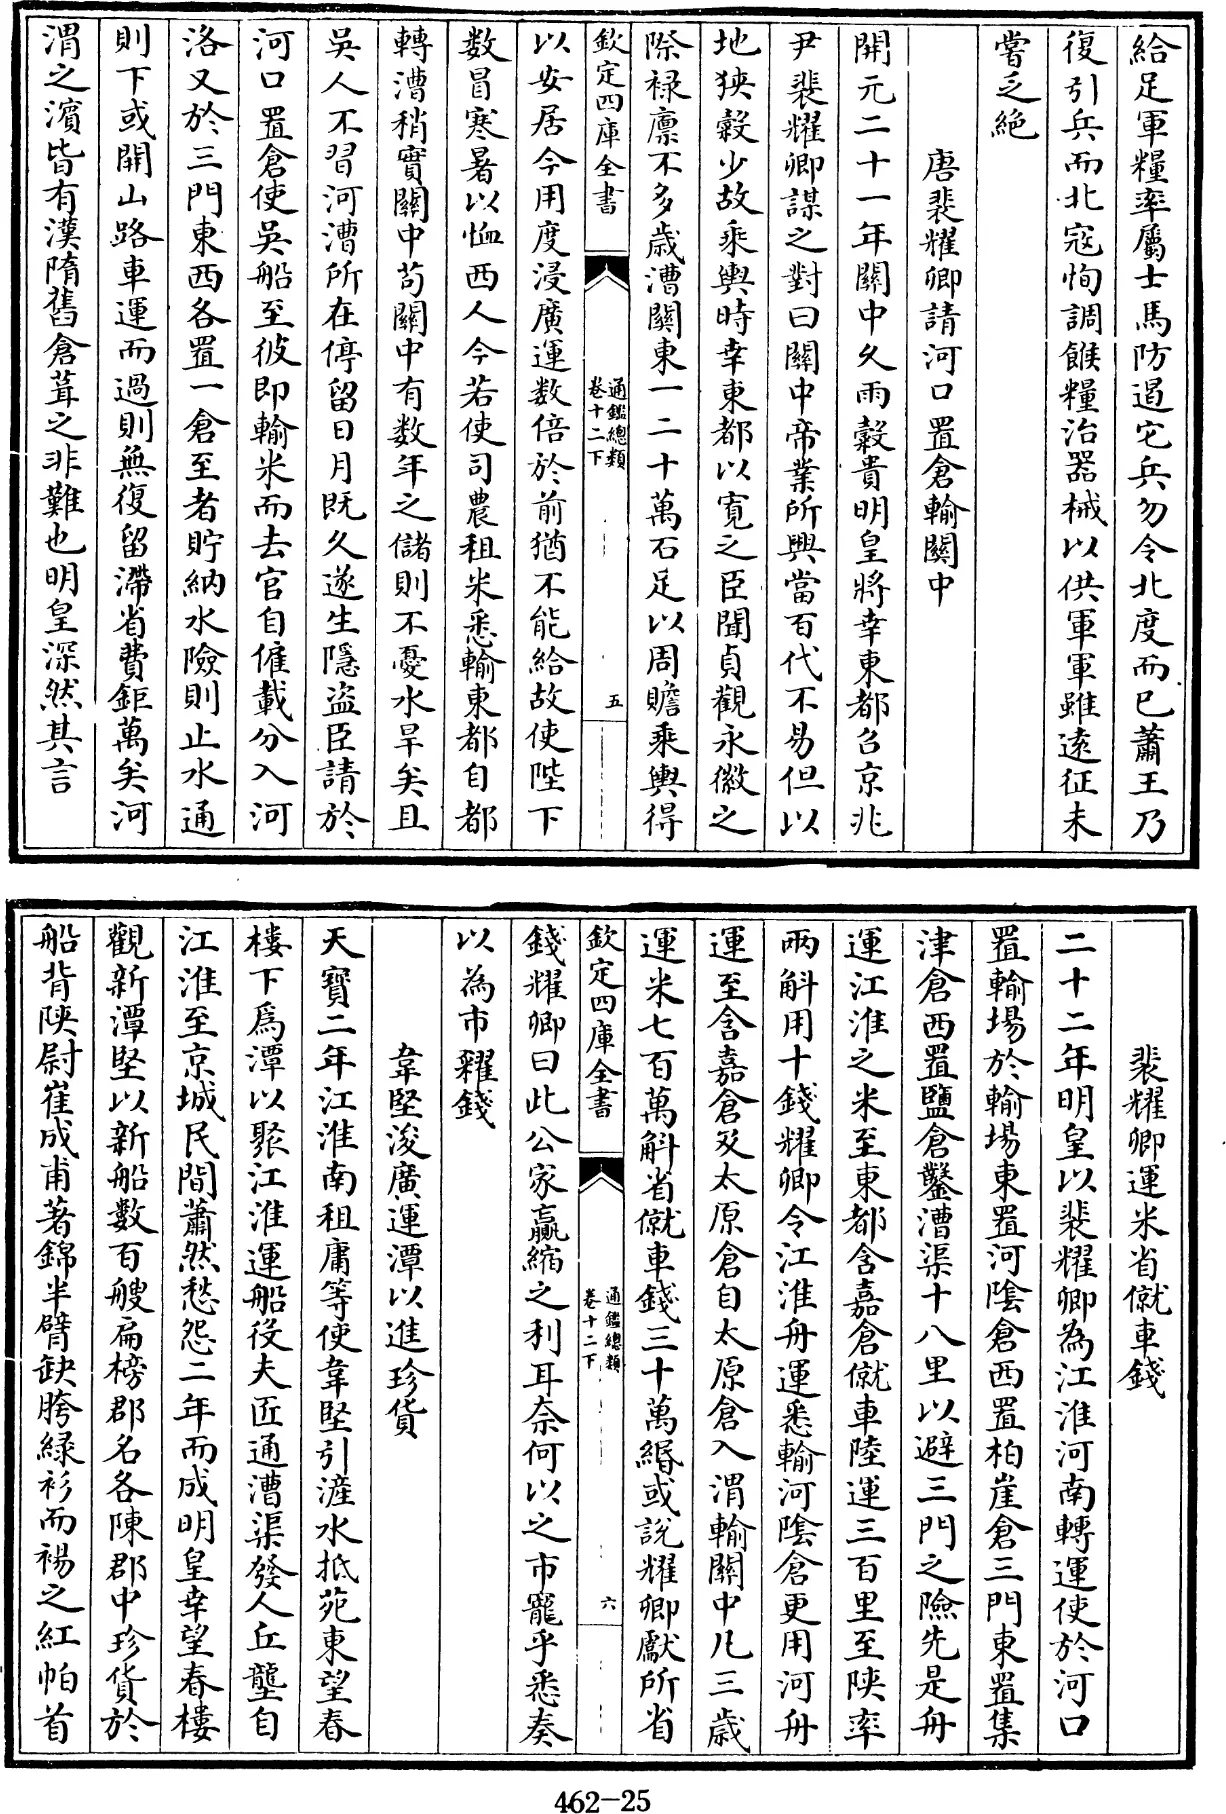 給足軍糧率屬士馬防遏它兵勿令北度而已蕭王乃
復引兵而北寇恂調餱糧治器械以供軍軍雖遠征未
嘗乏絶
唐裴耀卿請河口置倉輸關中
開元二十一年關中久雨穀貴明皇將幸東都召京兆
尹裴耀卿謀之對曰關中帝業所興當百代不易但以
地狹穀少故乘輿時幸東都以寬之臣聞貞觀永徽之
際祿廪不多歲漕關東一二十萬石足以周贍乘輿得
欽定四庫全書
通鑑總類
卷十二下
五
以安居今用度浸廣運数倍於前猶不能給故使陛下
数冒寒暑以恤西人今若使司農租米悉輸東都自都
轉漕稍實關中苟關中有数年之儲則不憂水旱矣且
吳人不習河漕所在停留日月既久遂生隱盜臣請於
河口置倉使吳船至彼即輸米而去官自僱載分入河
洛又於三門東西各置一倉至者貯納水險則止水通
則下或開山路車運而過則無復留滯省費鉅萬矣河
渭之濱皆有漢隋舊倉葺之非難也明皇深然其言
裴耀卿運米省僦車錢
二十二年明皇以裴耀卿為江淮河南轉運使於河口
置輸場於輸場東置河陰倉西置柏崖倉三門東置集
津倉西置鹽倉鑿漕渠十八里以避三門之險先是舟
運江淮之米至東都含嘉倉僦車陸運三百里至陝率
兩斛用十錢耀卿令江淮舟運悉輸河陰倉更用河舟
運至含嘉倉及太原倉自太原倉入渭輸關中凡三歲
運米七百萬斛省僦車錢三十萬緡或說耀卿獻所省
欽定四庫全書
通鑑總類
卷十二下
六
錢耀卿曰此公家贏縮之利耳奈何以之市寵乎悉奏
以為市糴錢
韋堅浚廣運潭以進珍貨
天寶二年江淮南租庸等使韋堅引滻水抵苑東望春
樓下爲潭以聚江淮運船役夫匠通漕渠發人丘壟自
江淮至京城民間蕭然愁怨二年而成明皇幸望春樓
觀新潭堅以新船數百艘扁榜郡名各陳郡中珍貨於
船背陝尉崔成甫著錦半臂缺胯緑衫而裼之紅帕首
462-25